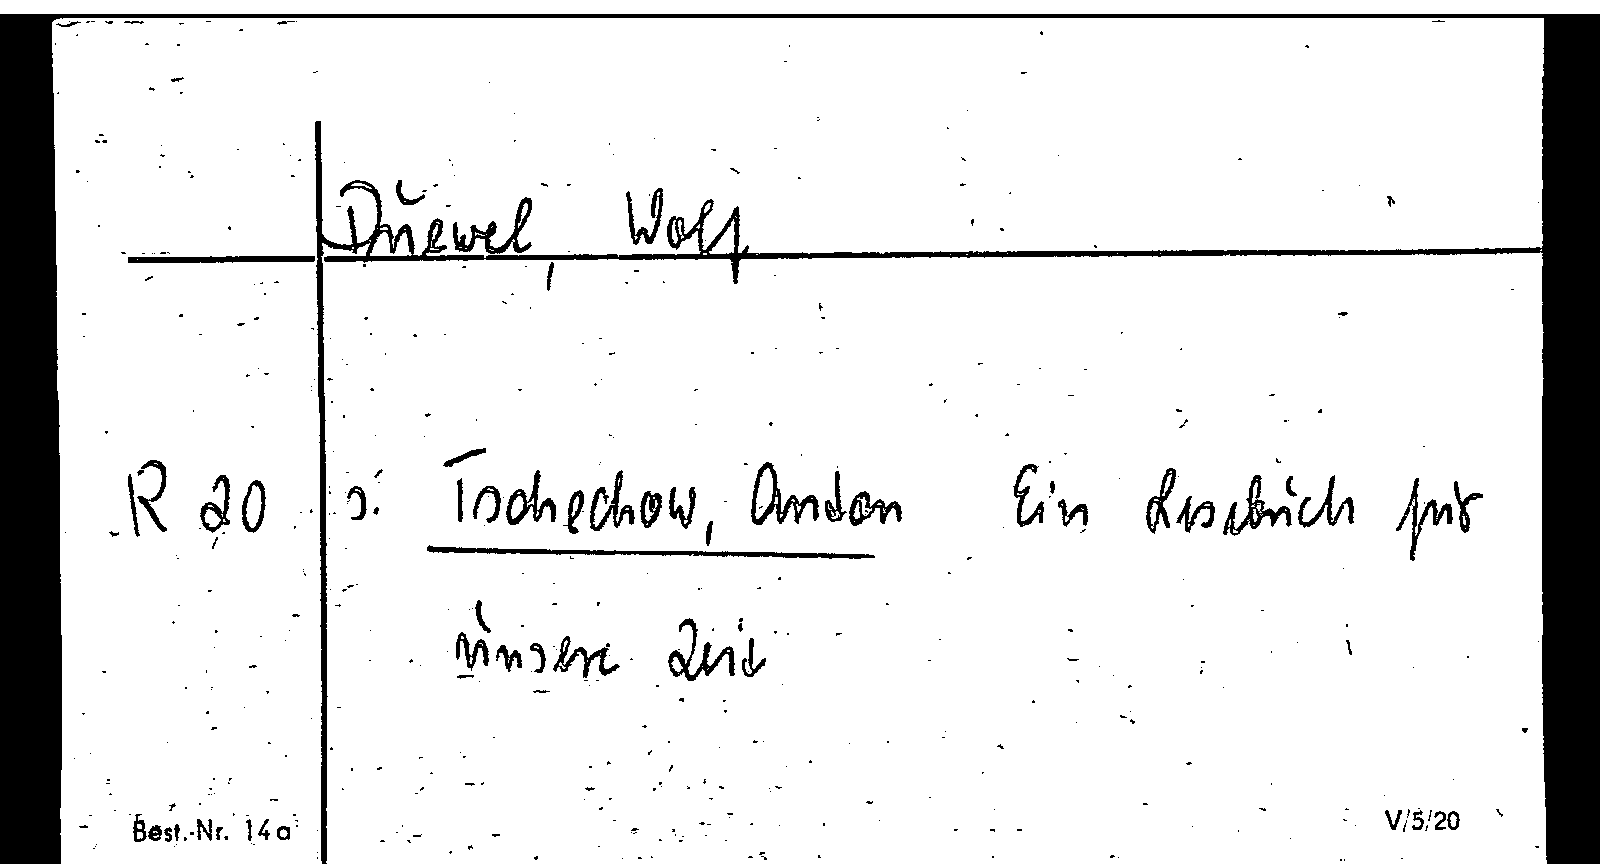 Düewel, Wolf
R 20 s. Tschechow, Anton Ein Lesebuch für
unsere Zeit
Best.-Nr. 14a V/5/20